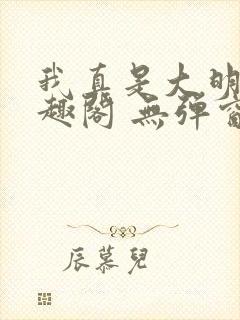 我真是大明
趣閣 無彈窗
辰慕兒